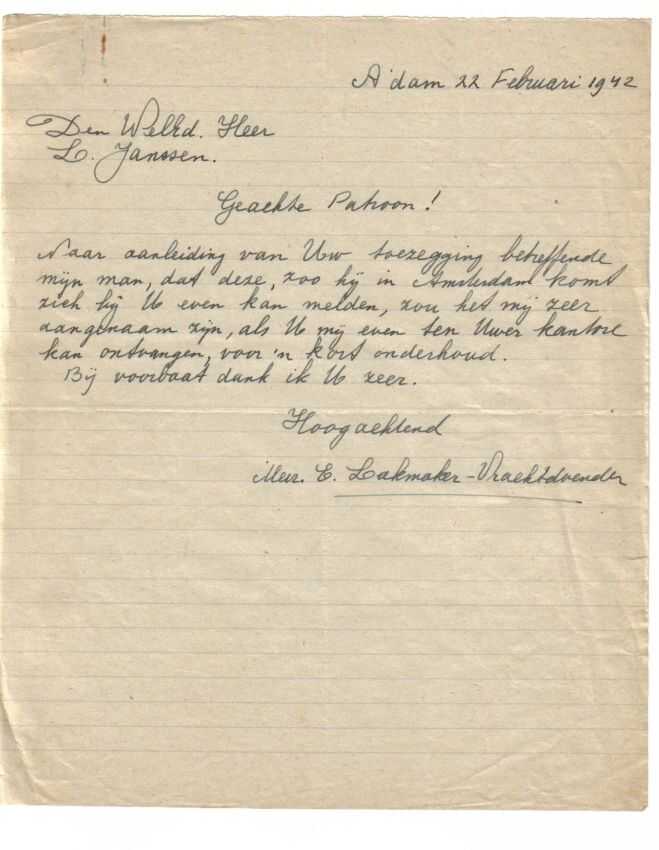 A'dam 22 Februari 1942
Den WelEd. Heer
L. Janssen.
Geachte Patroon!
Naar aanleiding van Uw toezegging betreffende
mijn man, dat deze, zoo hij in Amsterdam komt
zich bij U even kan melden, zou het mij zeer
aangenaam zijn, als U mij even ten Uwer kantore
kan ontvangen, voor 'n kort onderhoud.
Bij voorbaat dank ik U zeer.
Hoogachtend
Mevr. E. Lakmaker-Vrachtdoender